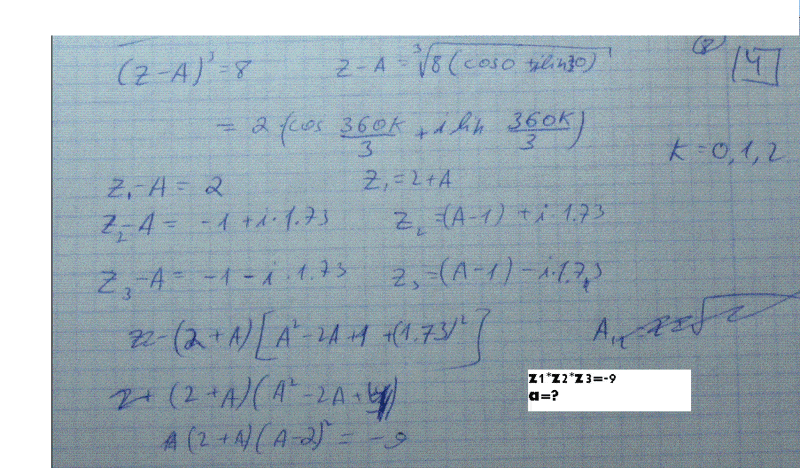 (8) 4
(Z-A)³=8 Z-A = ³√8(cos0 + isin0)
= 2 (cos 360K/3 + i sin 360K/3)
K=0,1,2
Z₁-A = 2 Z₁=2+A
Z₂-A = -1+i·1.73 Z₂=(A-1)+i·1.73
Z₃-A = -1-i·1.73 Z₃=(A-1)-i·1.73
(2+A)[A²-2A+1+(1.73)²]
(2+A)(A²-2A+4)
(2+A)(A-2)² = -9
z1*z2*z3=-9
a=?